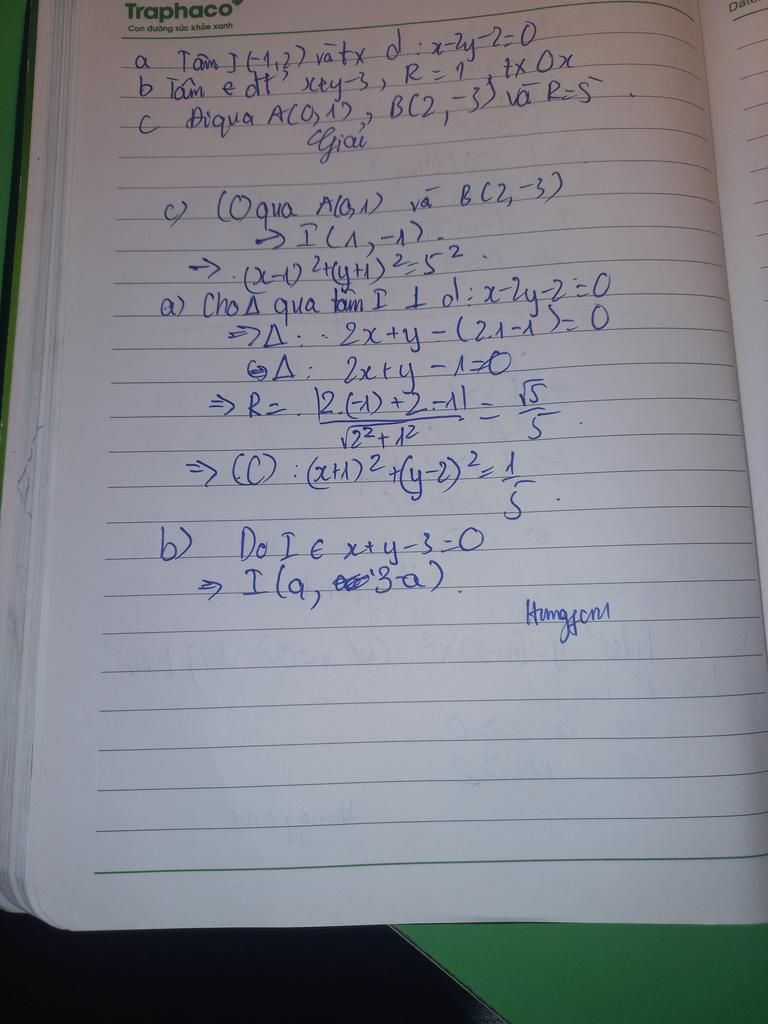 Traphaco
Con đường sức khỏe xanh
a Tâm I(-1,2) và tx d: x-2y-2=0
b Tâm ∈ đt x+y-3, R=1, tx Ox
c Đi qua A(0,1), B(2,-3) và R=5.
Giải
c) (C) qua A(0,1) và B(2,-3)
→ I(1,-1).
→ (x-1)²+(y+1)²=5².
a) Cho Δ qua tâm I ⊥ d: x-2y-2=0
⇒ Δ: 2x+y-(2.1-1)=0
⇔ Δ: 2x+y-1=0
⇒ R= |2.(-1)+2-1| / √2²+1² = √5/5.
⇒ (C): (x+1)²+(y-2)²=1/5.
b) Do I ∈ x+y-3=0
⇒ I(a, 3-a).